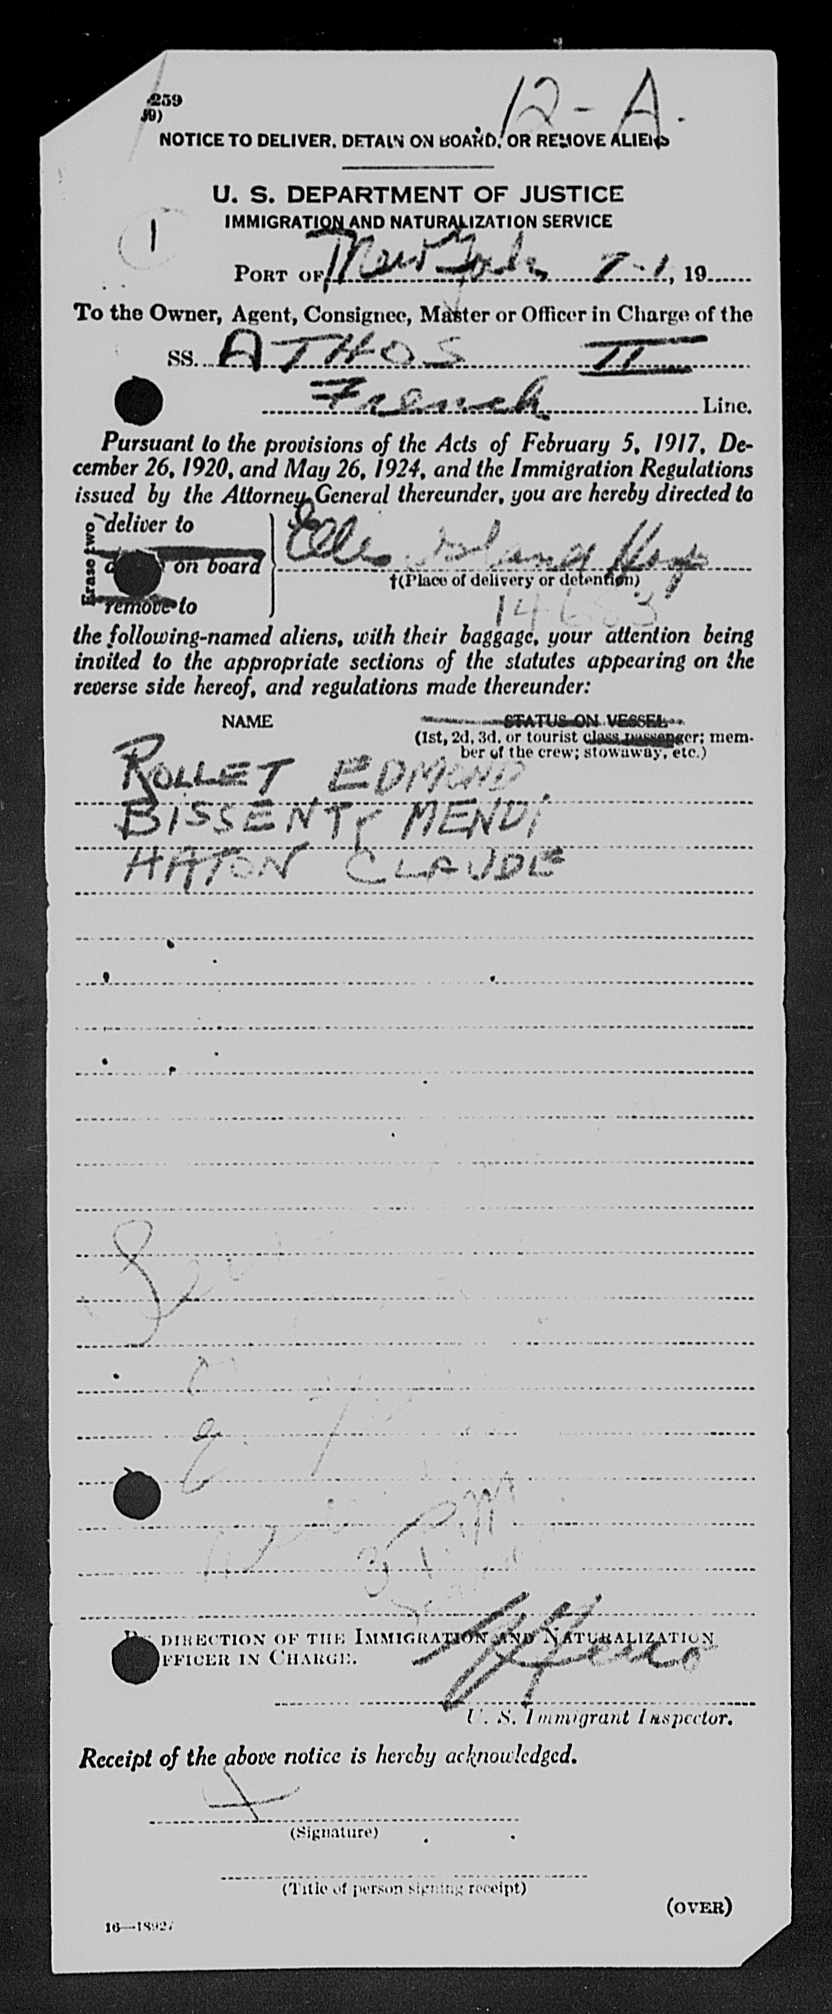 259
12-A.
NOTICE TO DELIVER, DETAIN ON BOARD, OR REMOVE ALIENS
U. S. DEPARTMENT OF JUSTICE
IMMIGRATION AND NATURALIZATION SERVICE
1
PORT OF New York 7-1, 19
To the Owner, Agent, Consignee, Master or Officer in Charge of the
SS. ATHOS II
French Line.
Pursuant to the provisions of the Acts of February 5, 1917, De-
cember 26, 1920, and May 26, 1924, and the Immigration Regulations
issued by the Attorney General thereunder, you are hereby directed to
Erase two
deliver to
on board
remove to
Ellis Island Hosp
†(Place of delivery or detention)
the following-named aliens, with their baggage, your attention being
invited to the appropriate sections of the statutes appearing on the
reverse side hereof, and regulations made thereunder:
NAME STATUS ON VESSEL
(1st, 2d, 3d, or tourist class passenger; mem-
ber of the crew; stowaway, etc.)
ROLLET EDMOND
BISSENTY MENDI
HATON CLAUDE
3 PM
BY DIRECTION OF THE IMMIGRATION AND NATURALIZATION
OFFICER IN CHARGE.
U. S. Immigrant Inspector.
Receipt of the above notice is hereby acknowledged.
X
(Signature)
(Title of person signing receipt)
(OVER)
16—18927